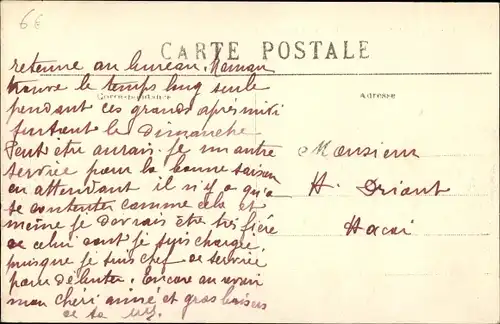 6€
CARTE POSTALE
Correspondance
Adresse
retenue au bureau. Maman
trouve le temps long seule
pendant ces grands après midi
surtout le Dimanche
Peut être aurais-je un autre
service pour la bonne saison
en attendant il n'y a qu'à
se contenter comme cela et
même je devrais être très fière
de celui dont je suis chargée,
puisque je suis chef de service
pour débuter. Encore au revoir
mon chéri aimé et gros baisers
de ta
Monsieur
H. Driant